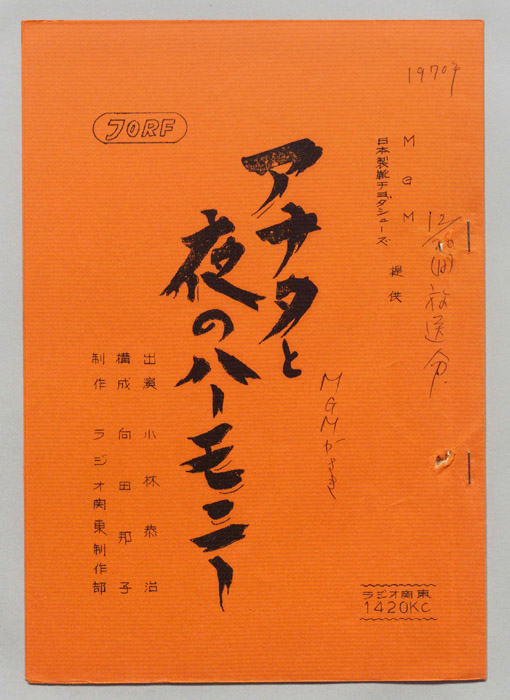 1970年
JORF
12/20(日)放送分
MGM
日本製靴チヨダシューズ
提供
MGMがさき
アナタと
夜のハーモニー
出演 小林恭治
構成 向田邦子
制作 ラジオ関東制作部
ラジオ関東
1420KC